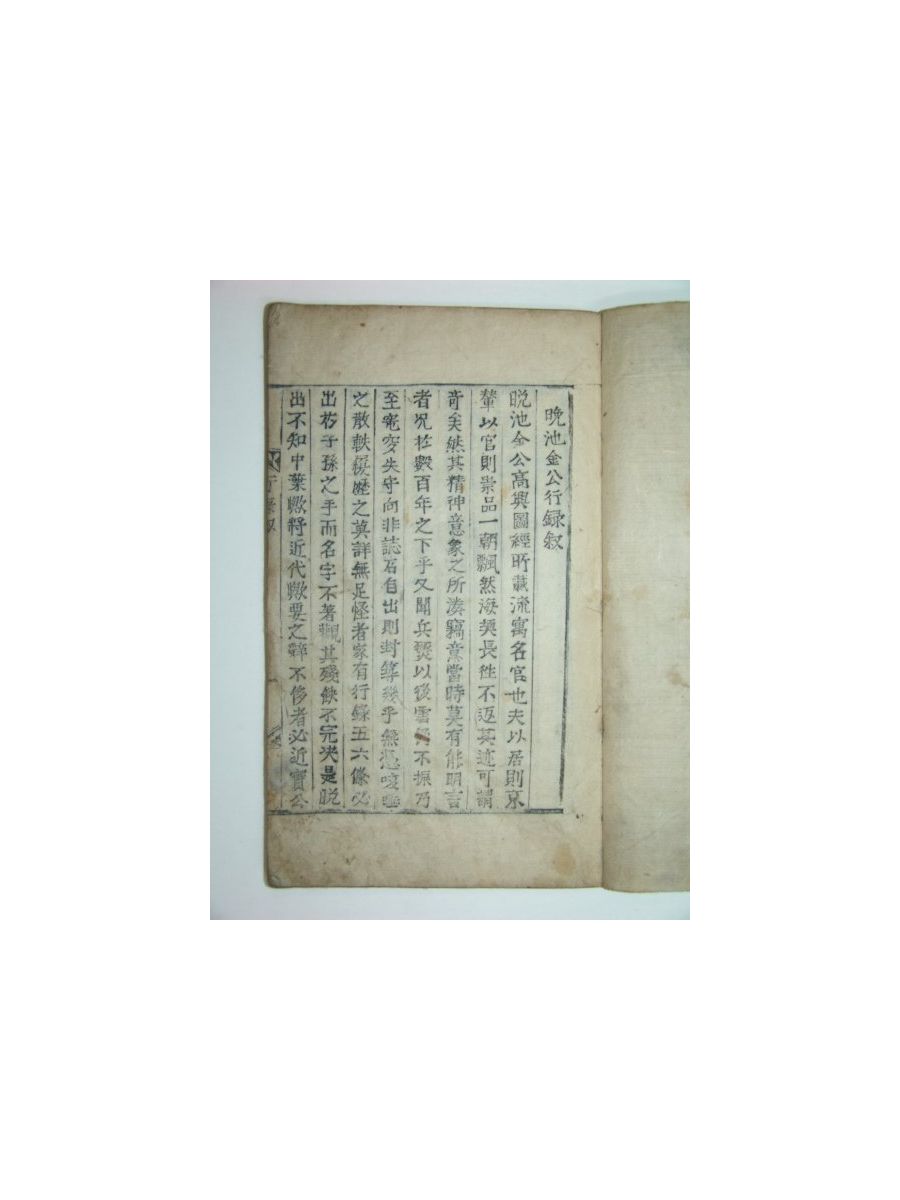 晩池金公行録叙
晩池金公高興圖經所載流寓名官也夫以居則京
輦以官則崇品一朝飄然海美長徃不返其迹可謂
竒矣然其精神意象之所湊竊意當時莫有能明言
者况於數百年之下乎又聞兵燹以後雲仍不振乃
至竁穸失守向非誌石自出則封筭幾乎無憑嗟
之散軼履歴之莫詳無足怪者家有行錄五六條必
出於子孫之手而名字不著觀其殘缺不完决是脱
出不知中葉歟將近代歟要之辭不侈者必近實公
行錄叙